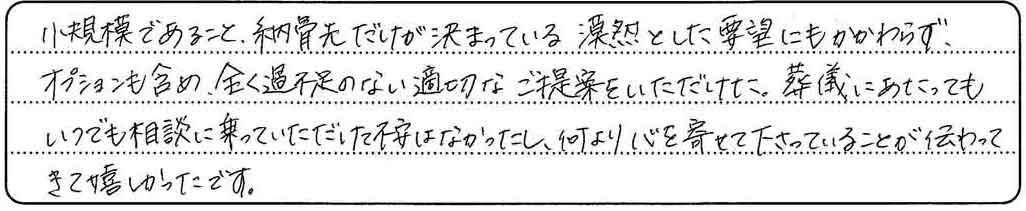 小規模であること、納骨先だけが決まっている 漠然とした要望にもかかわらず、
オプションも含め、全く過不足のない適切な ご提案をいただけた。葬儀にあたっても
いつでも相談に乗っていただけた不安はなかったし、何より心を寄せて下さっていることが伝わって
きて嬉しかったです。